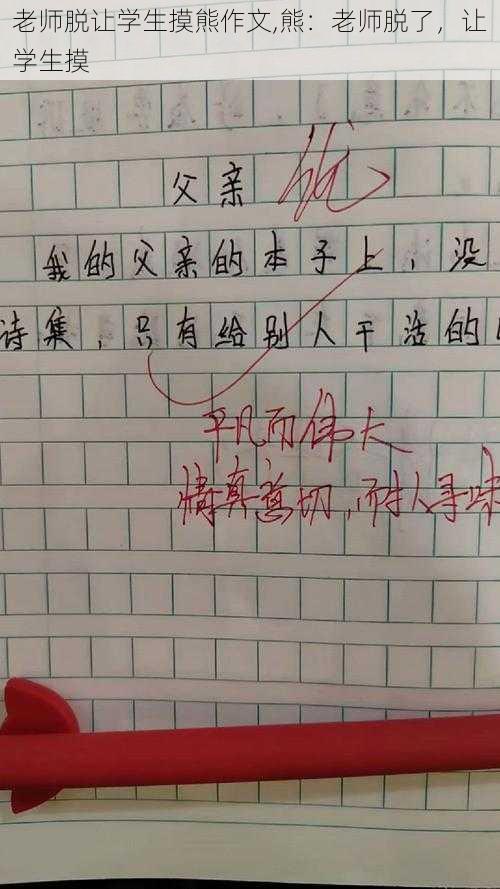 老师脱让学生摸熊作文,熊：老师脱了，让
学生摸
父亲 优
我的父亲的本子上，没
诗集，只有给别人干活的
平凡而伟大
情真意切，耐人寻味